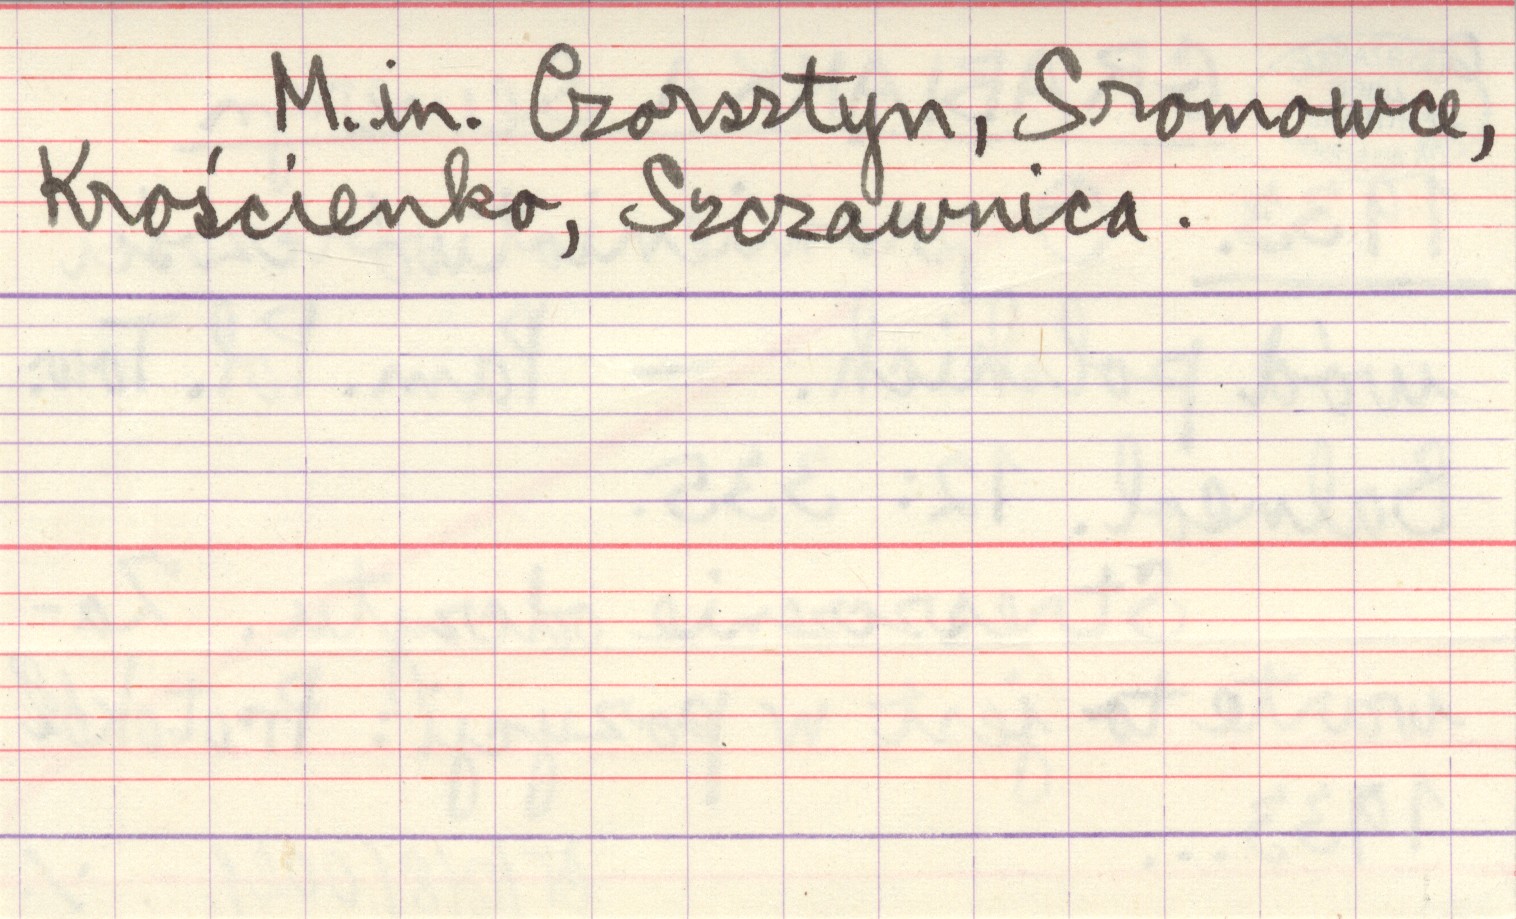 M.in. Czorsztyn, Sromowce,
Krościenko, Szczawnica.